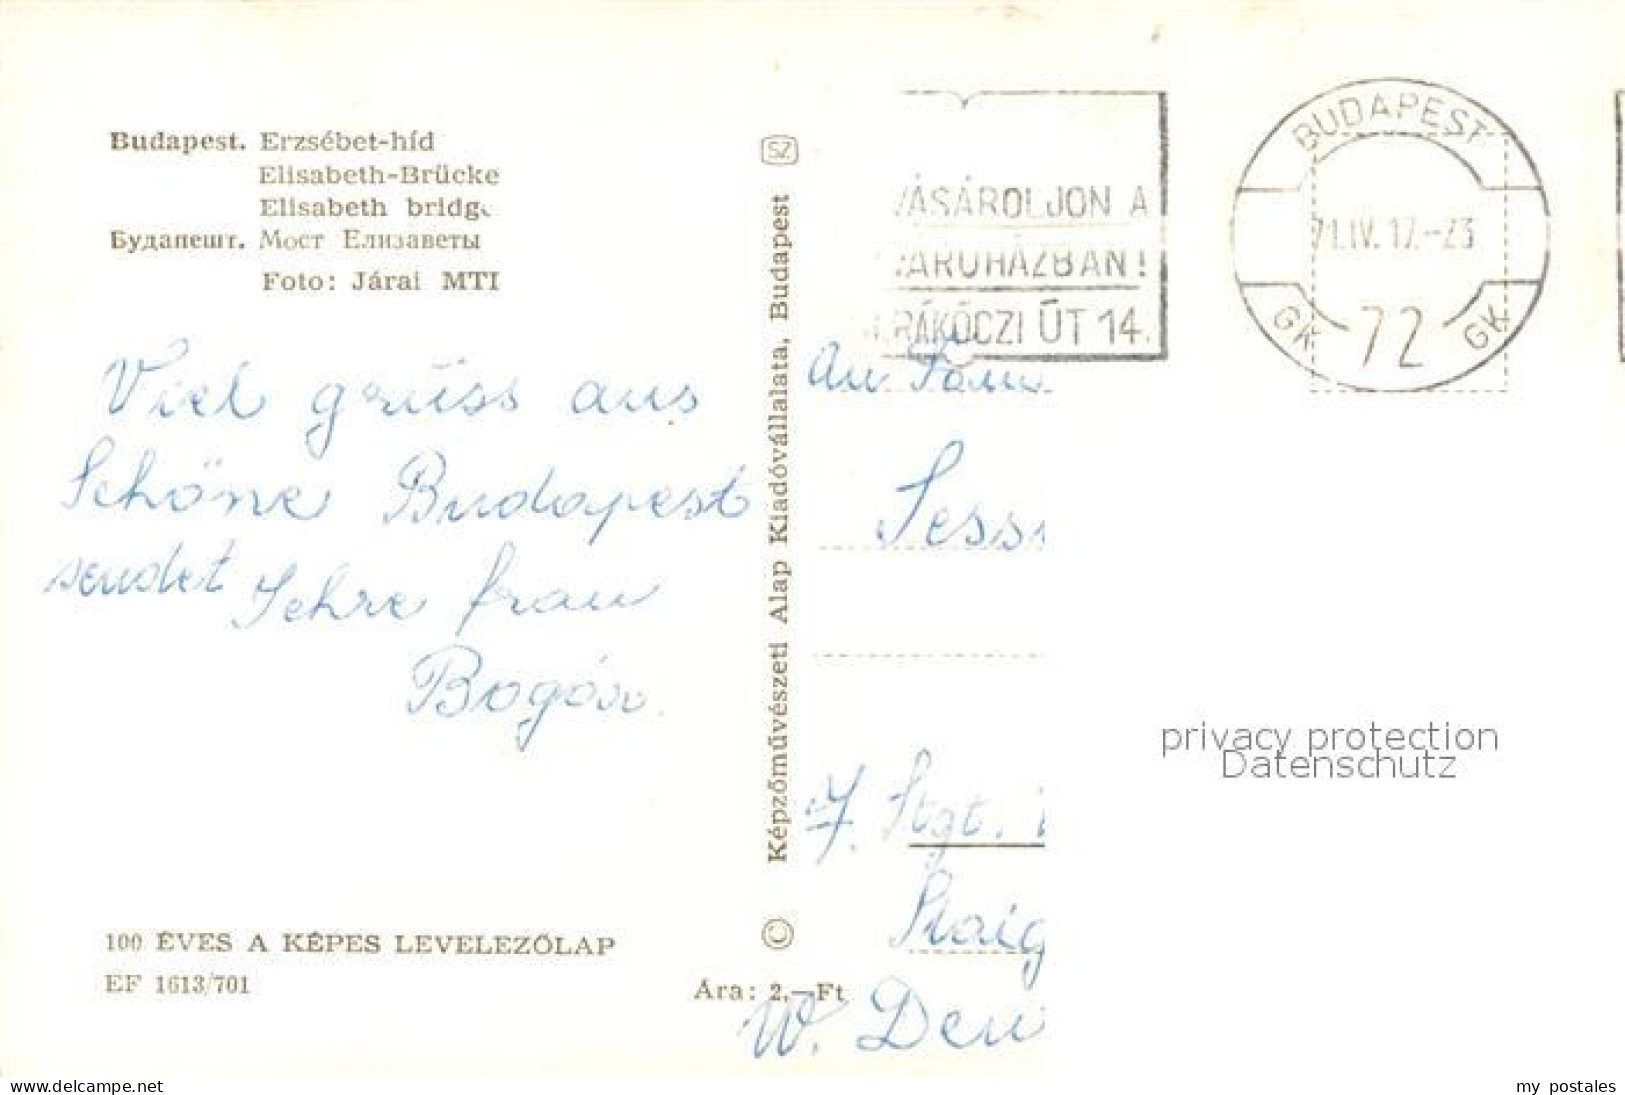 Budapest. Erzsébet-híd
Elisabeth-Brücke
Elisabeth bridge
Будапешт. Мост Елизаветы
Foto: Járai MTI
Viel grüss aus
Schöne Budapest
sendet Jehre frau
Bogár.
100 ÉVES A KÉPES LEVELEZŐLAP
EF 1613/701
SZ
Képzőművészeti Alap Kiadóvállalata, Budapest
©
Ára: 2,—Ft
VÁSÁROLJON A
RÁKÓCZI ÚT 14.
BUDAPEST
71.IV. 17.-23
GK 72 GK
An Fam
Sess
7. Stgt.
Staig
W. Deu
privacy protection
Datenschutz
www.delcampe.net
my_postales